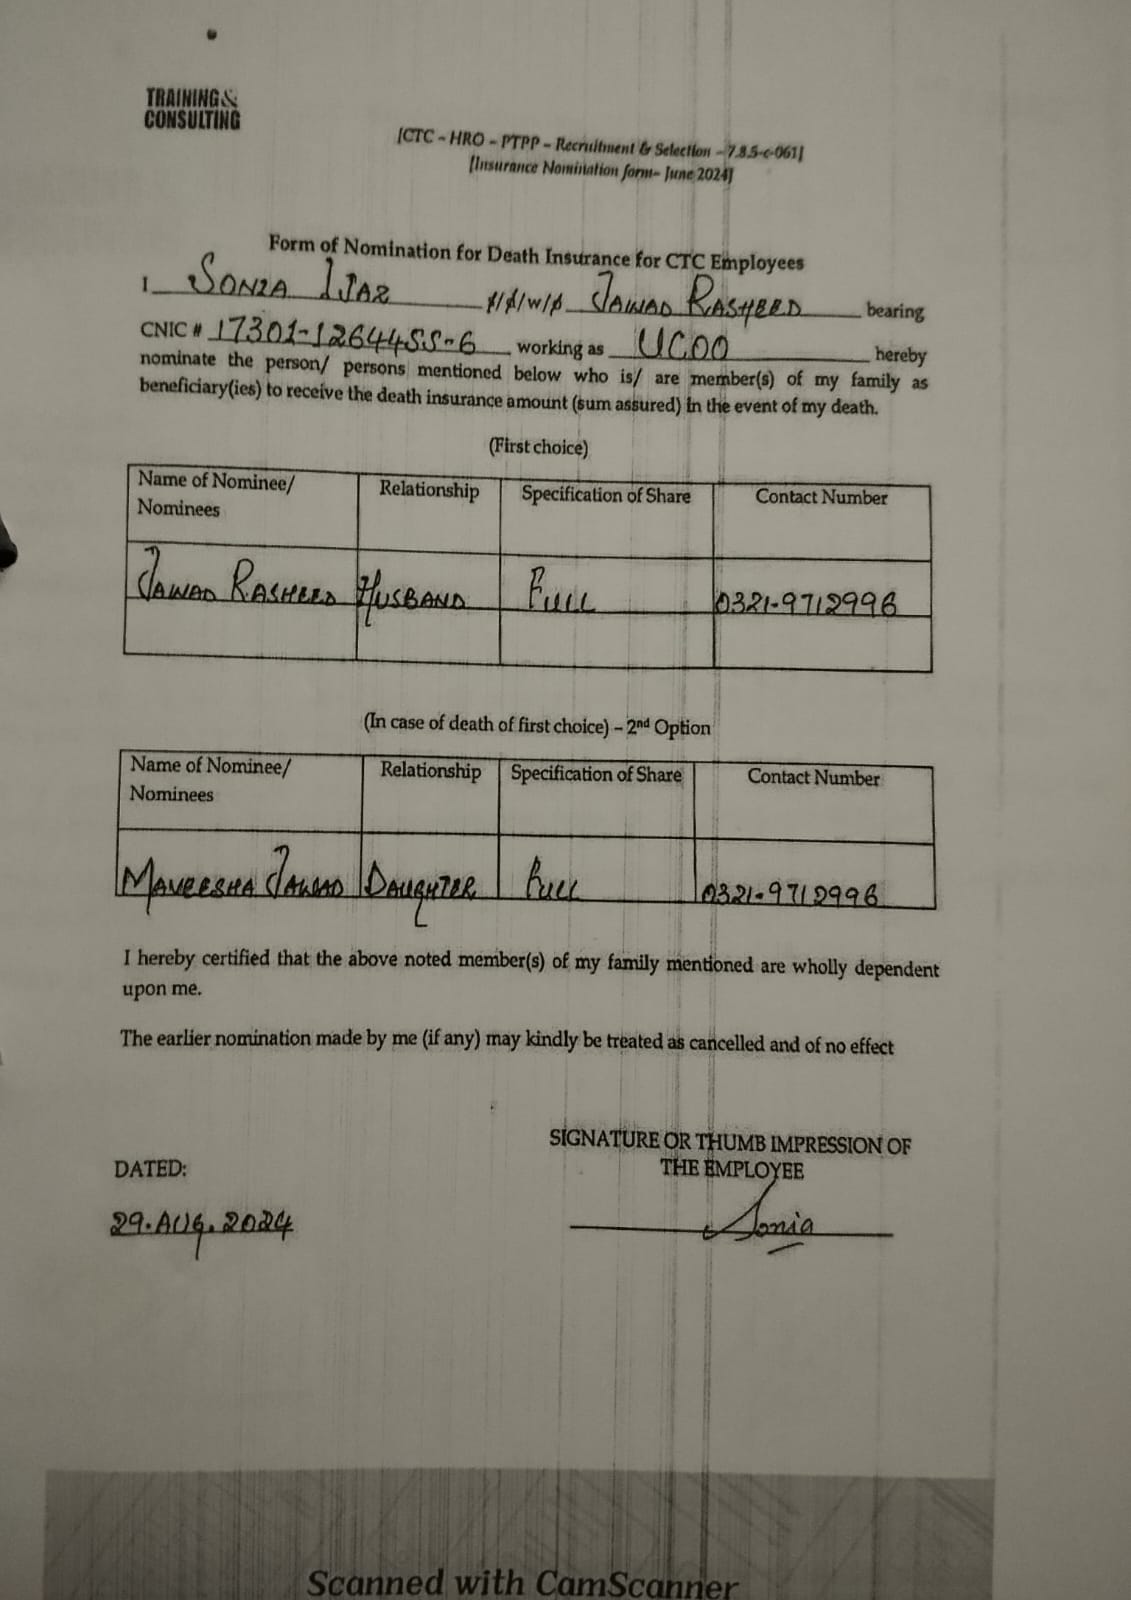 TRAINING&
CONSULTING
[CTC - HRO - PTPP - Recruitment & Selection - 7.8.5-c-061]
[Insurance Nomination form- June 2024]
Form of Nomination for Death Insurance for CTC Employees
I SONIA IJAZ s/d/w/o JAWAD RASHEED bearing
CNIC # 17301-1264455-6 working as UCOO hereby
nominate the person/ persons mentioned below who is/ are member(s) of my family as
beneficiary(ies) to receive the death insurance amount (sum assured) in the event of my death.
(First choice)
Name of Nominee/ Nominees Relationship Specification of Share Contact Number
JAWAD RASHEED HUSBAND FULL 0321-9712996
(In case of death of first choice) – 2nd Option
Name of Nominee/ Nominees Relationship Specification of Share Contact Number
MAVEESHA JAWAD DAUGHTER FULL 0321-9712996
I hereby certified that the above noted member(s) of my family mentioned are wholly dependent
upon me.
The earlier nomination made by me (if any) may kindly be treated as cancelled and of no effect
SIGNATURE OR THUMB IMPRESSION OF
THE EMPLOYEE
DATED:
29.AUG.2024
Sonia
Scanned with CamScanner